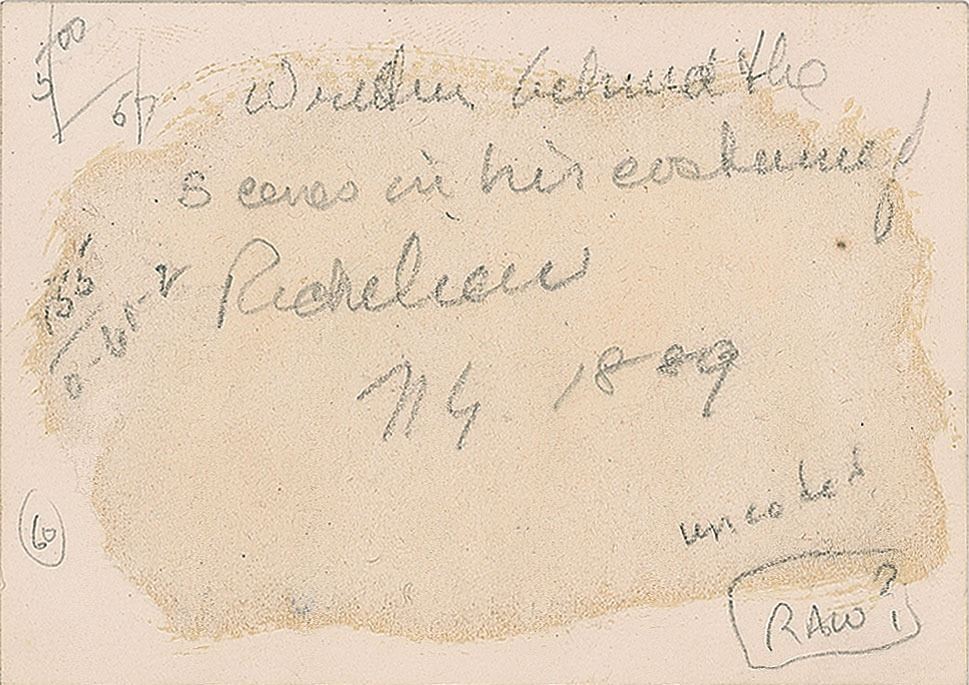 5/00
67
Written behind the
scenes in his costume of
Richelieu
NY. 1889
60
RAW?